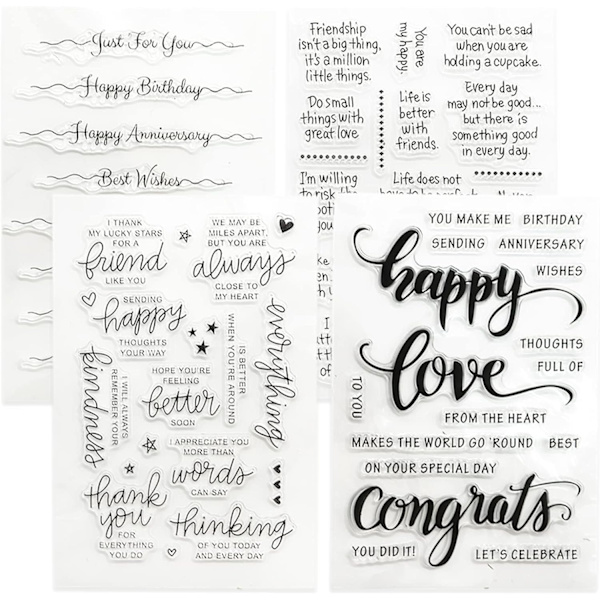 Just For You
Happy Birthday
Happy Anniversary
Best Wishes
Friendship
isn't a big thing,
it's a million
little things.
You are
my happy.
You can't be sad
when you are
holding a cupcake.
Do small
things with
great love
Life is
better
with
friends.
Every day
may not be good...
but there is
something good
in every day.
I'm willing
to risk the
Life does not
I THANK
MY LUCKY STARS
FOR A
friend
LIKE YOU
WE MAY BE
MILES APART,
BUT YOU ARE
always
CLOSE TO
MY HEART
SENDING
happy
THOUGHTS
YOUR WAY
everything
IS BETTER
WHEN YOU'RE AROUND
kindness
I WILL ALWAYS
REMEMBER YOUR
HOPE YOU'RE
FEELING
better
SOON
I APPRECIATE YOU
MORE THAN
words
CAN SAY
thank
you
FOR
EVERYTHING
YOU DO
thinking
OF YOU TODAY
AND EVERY DAY
YOU MAKE ME BIRTHDAY
SENDING ANNIVERSARY
happy
WISHES
THOUGHTS
FULL OF
love
TO YOU
FROM THE HEART
MAKES THE WORLD GO 'ROUND BEST
ON YOUR SPECIAL DAY
congrats
YOU DID IT! LET'S CELEBRATE